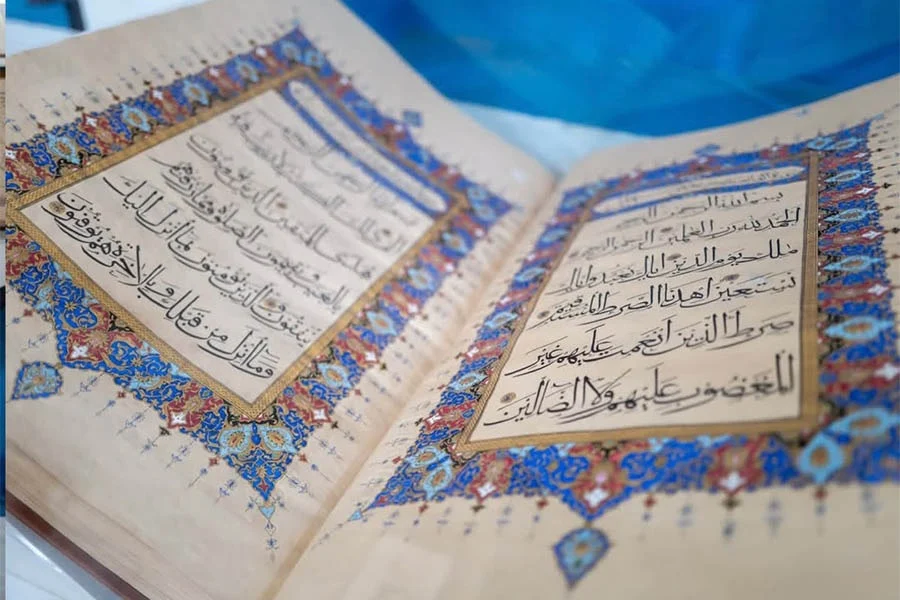 بسم الله الرحمن الرحيم
الحمد لله رب العلمين الرحمن الرحيم
ملك يوم الدين اياك نعبد واياك
نستعين اهدنا الصرط المستقيم
صرط الذين انعمت عليهم غير
المغضوب عليهم ولا الضالين
هدى للمتقين الذين يؤمنون
بالغيب ويقيمون الصلاة ومما رزقناهم
ينفقون والذين يؤمنون بما انزل اليك
وما انزل من قبلك وبالاخرة هم يوقنون